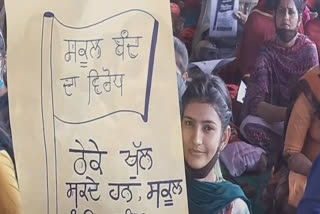 ਸਕੂਲ ਬੰਦ
ਦਾ ਵਿਰੋਧ
ਠੇਕੇ ਖੁੱਲ
ਸਕਦੇ ਹਨ, ਸਕੂਲ